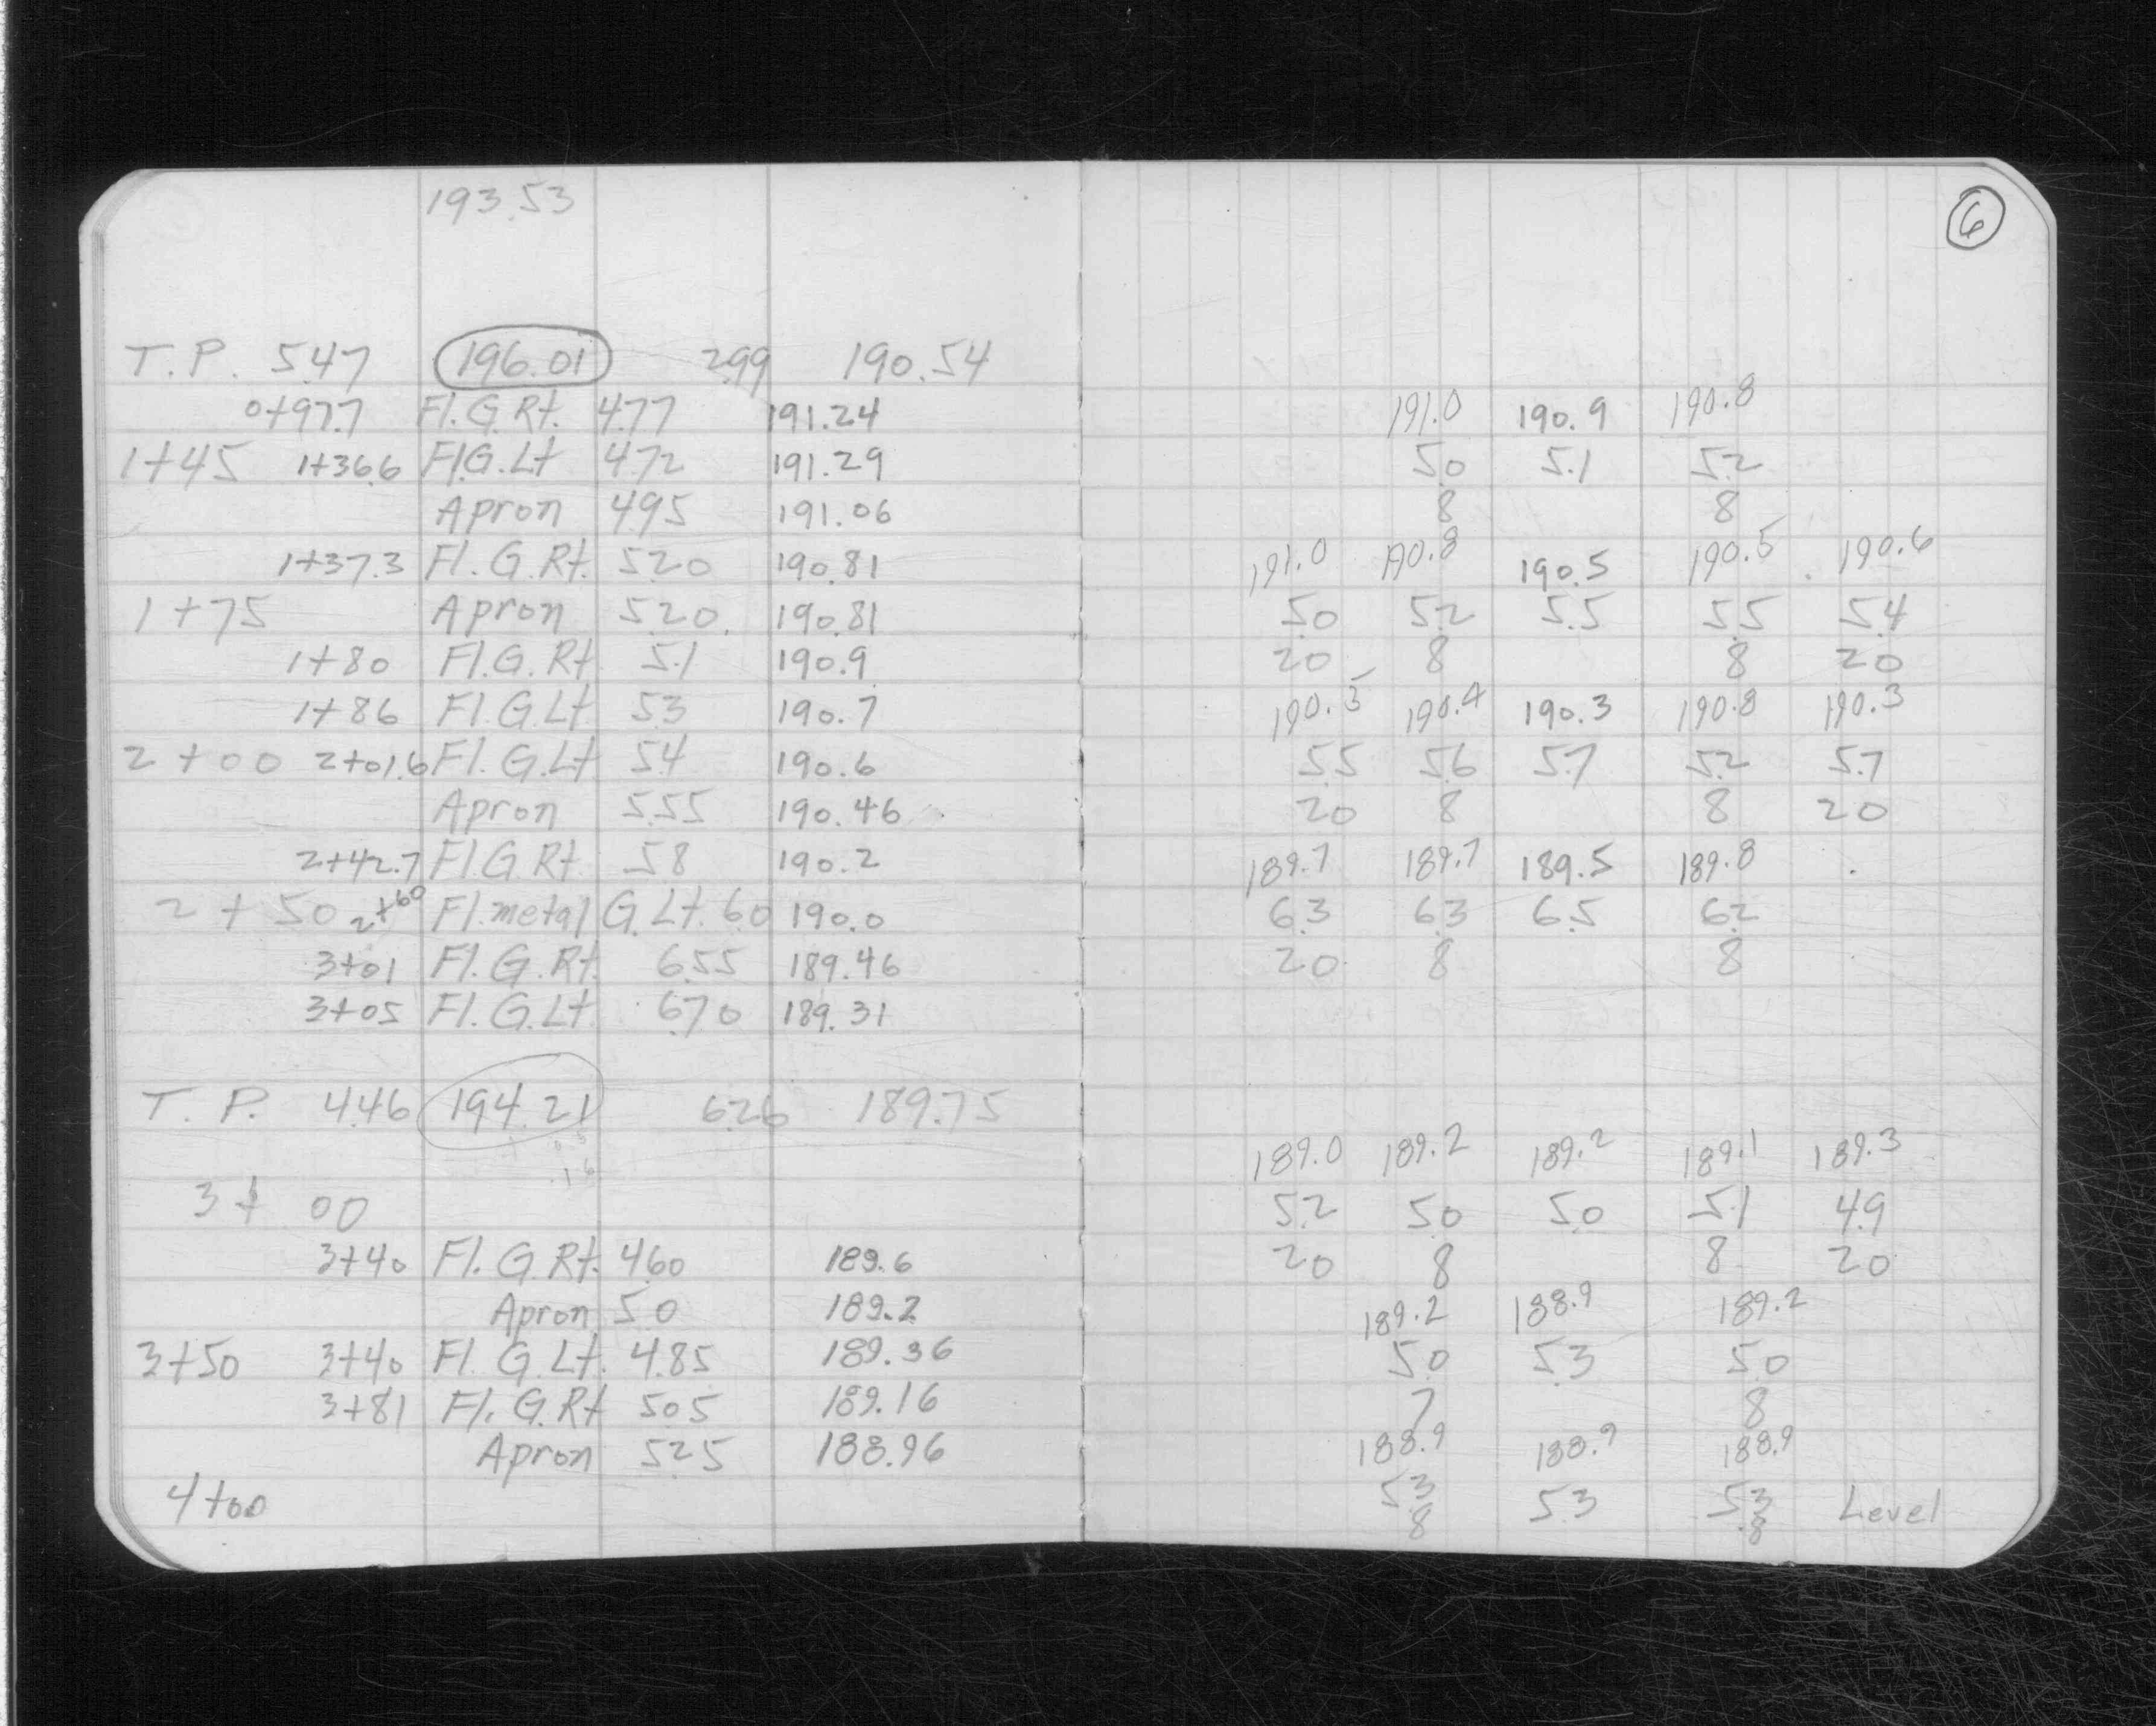 193.53
6
T.P. 5.47 196.01 2.99 190.54
0+97.7 Fl.G.Rt. 4.77 191.24 191.0 190.9 190.8
1+45 1+36.6 Fl.G.Lt 4.72 191.29 5.0 5.1 5.2
Apron 4.95 191.06 8 8
1+37.3 Fl.G.Rt. 5.20 190.81 191.0 190.8 190.5 190.5 190.6
1+75 Apron 5.20 190.81 5.0 5.2 5.5 5.5 5.4
1+80 Fl.G.Rt 5.1 190.9 20 8 8 20
1+86 Fl.G.Lt. 5.3 190.7 190.5 190.4 190.3 190.8 190.3
2+00 2+01.6 Fl.G.Lt 5.4 190.6 5.5 5.6 5.7 5.2 5.7
Apron 5.55 190.46 20 8 8 20
2+42.7 Fl.G.Rt. 5.8 190.2 189.7 189.7 189.5 189.8
2+50 2+60 Fl.metal G.Lt. 6.0 190.0 6.3 6.3 6.5 6.2
3+01 Fl.G.Rt. 6.55 189.46 20 8 8
3+05 Fl.G.Lt. 6.70 189.31
T.P. 4.46 194.21 6.26 189.75
189.0 189.2 189.2 189.1 189.3
3+00 5.2 5.0 5.0 5.1 4.9
3+40 Fl.G.Rt. 4.60 189.6 20 8 8 20
Apron 5.0 189.2 189.2 188.9 189.2
3+50 3+40 Fl.G.Lt. 4.85 189.36 5.0 5.3 5.0
3+81 Fl.G.Rt 5.05 189.16 7 8
Apron 5.25 188.96 188.9 188.9 188.9
4+00 5.3 5.3 5.3 Level
8 8